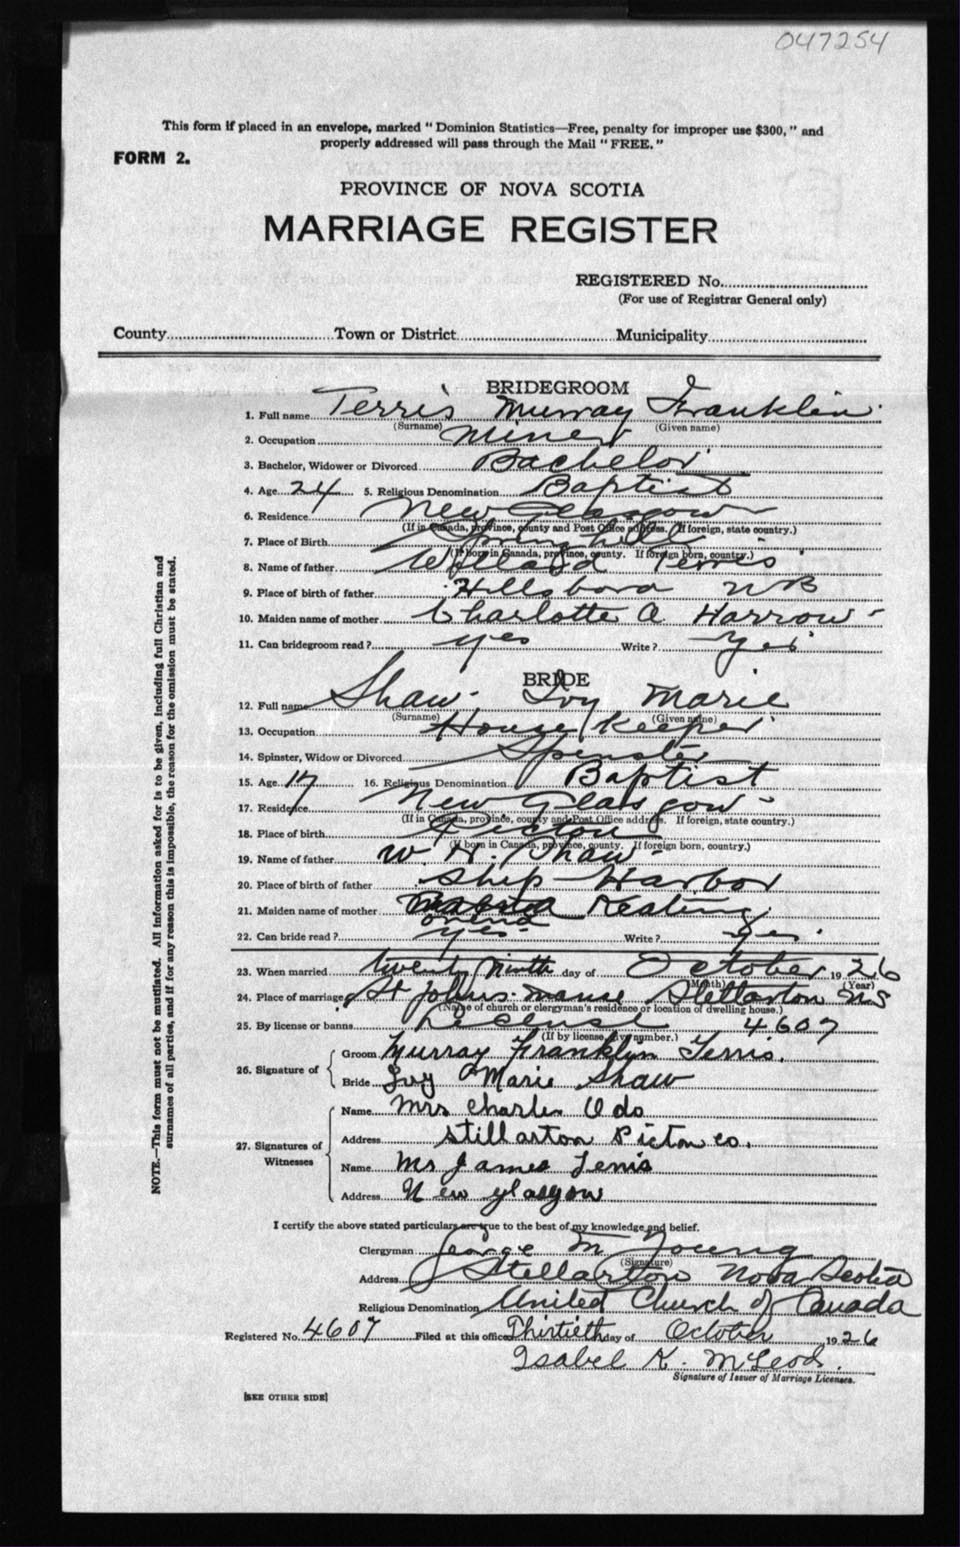 047254
This form if placed in an envelope, marked "Dominion Statistics—Free, penalty for improper use $300," and
properly addressed will pass through the Mail "FREE."
FORM 2.
PROVINCE OF NOVA SCOTIA
MARRIAGE REGISTER
REGISTERED No.
(For use of Registrar General only)
County Town or District Municipality
BRIDEGROOM
1. Full name Terris Murray Franklin
(Surname) (Given name)
2. Occupation Miner
3. Bachelor, Widower or Divorced Bachelor
4. Age 24 5. Religious Denomination Baptist
6. Residence New Glasgow
(If in Canada, province, county and Post Office address. If foreign, state country.)
7. Place of Birth Springhill
(If born in Canada, province, county. If foreign born, country.)
8. Name of father Willard Terris
9. Place of birth of father Hillsboro NB
10. Maiden name of mother Charlotte A Harrow
11. Can bridegroom read? yes Write? Yes
BRIDE
12. Full name Shaw Ivy Marie
(Surname) (Given name)
13. Occupation House Keeper
14. Spinster, Widow or Divorced Spinster
15. Age 17 16. Religious Denomination Baptist
17. Residence New Glasgow
(If in Canada, province, county and Post Office address. If foreign, state country.)
18. Place of birth Pictou
(If born in Canada, province, county. If foreign born, country.)
19. Name of father W. H. Shaw
20. Place of birth of father Ship Harbor
21. Maiden name of mother Keating
22. Can bride read? yes Write? Yes
23. When married twenty Ninth day of October 1926
(Month) (Year)
24. Place of marriage St Johns manse Stellarton NS
(Name of church or clergyman's residence or location of dwelling house.)
25. By license or banns License 4607
(If by license, give number.)
26. Signature of
Groom Murray Franklin Terris.
Bride Ivy Marie Shaw
27. Signatures of Witnesses
Name Mrs Charles Odo
Address Stillarton Pictou co.
Name Mr James Terris
Address New glasgow
I certify the above stated particulars are true to the best of my knowledge and belief.
Clergyman George M Young
(Signature)
Address Stellarton Nova Scotia
Religious Denomination United Church of Canada
Registered No. 4607 Filed at this office Thirtieth day of October 1926
Isabel K. McLeod.
Signature of Issuer of Marriage Licenses.
[SEE OTHER SIDE]
NOTE.—This form must not be mutilated. All information asked for is to be given, including full Christian and
surnames of all parties, and if for any reason this is impossible, the reason for the omission must be stated.